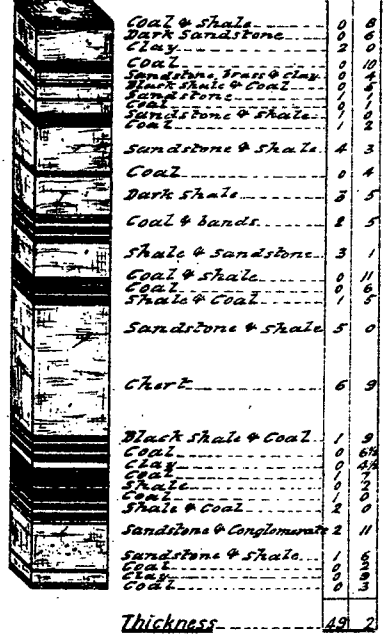 Coal & Shale 0 8
Dark Sandstone 0 6
Clay 2 0
Coal 0 10
Sandstone, Brass & Clay 0 4
Black Shale & Coal 0 5
Sandstone 1 1
Coal 0 1
Sandstone & Shale 1 0
Coal 1 2
Sandstone & Shale 4 3
Coal 0 4
Dark Shale 3 5
Coal & bands 2 5
Shale & Sandstone 3 1
Coal & Shale 0 11
Coal 0 6
Shale & Coal 1 5
Sandstone & Shale 5 0
Chert 6 9
Black Shale & Coal 1 9
Coal 0 6½
Clay 0 4½
Coal 1 7
Shale 0 2
Coal 1 0
Shale & Coal 2 0
Sandstone & Conglomerate 2 11
Sandstone & Shale 1 6
Coal 0 2
Clay 0 9
Coal 0 3
Thickness 49 2